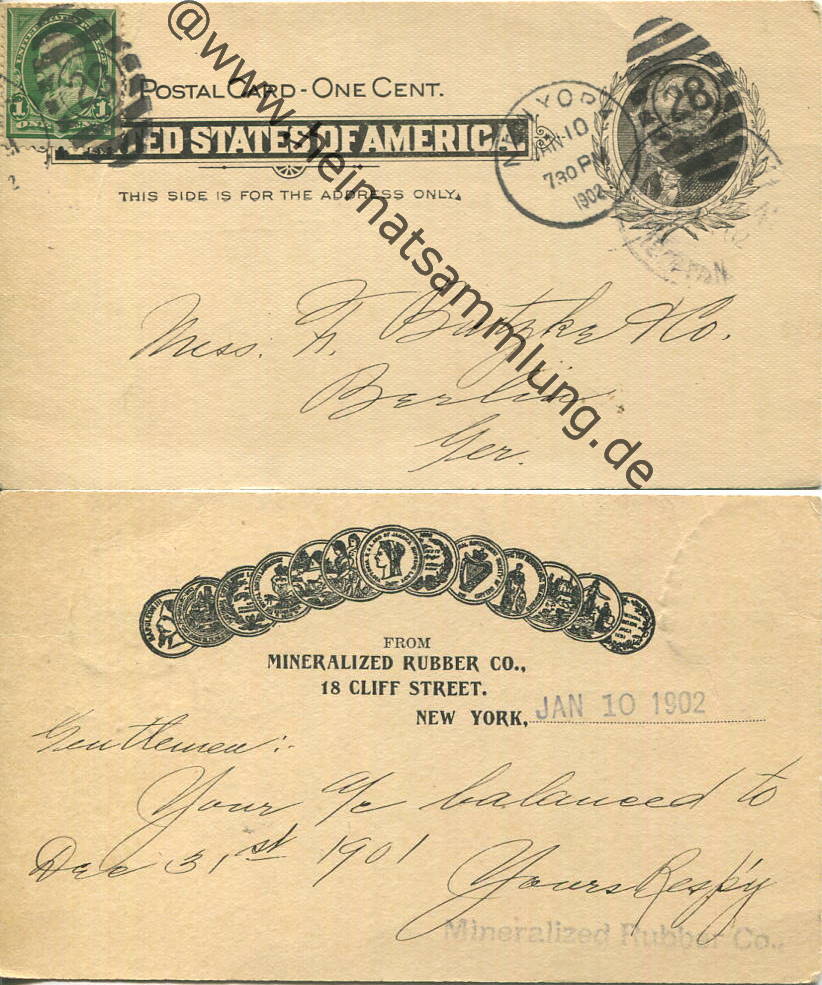 1 1
ONE CENT
POSTAL CARD - ONE CENT.
UNITED STATES OF AMERICA.
THIS SIDE IS FOR THE ADDRESS ONLY.
NEW YORK
JAN 10
730 PM
1902
28
28
Mess. F. Butzke & Co.
Berlin
Ger.
@www.heimatsammlung.de
FROM
MINERALIZED RUBBER CO.,
18 CLIFF STREET.
NEW YORK, JAN 10 1902
Gentlemen:.
Your a/c balanced to
Dec 31st 1901
Yours Resp'y
Mineralized Rubber Co.,